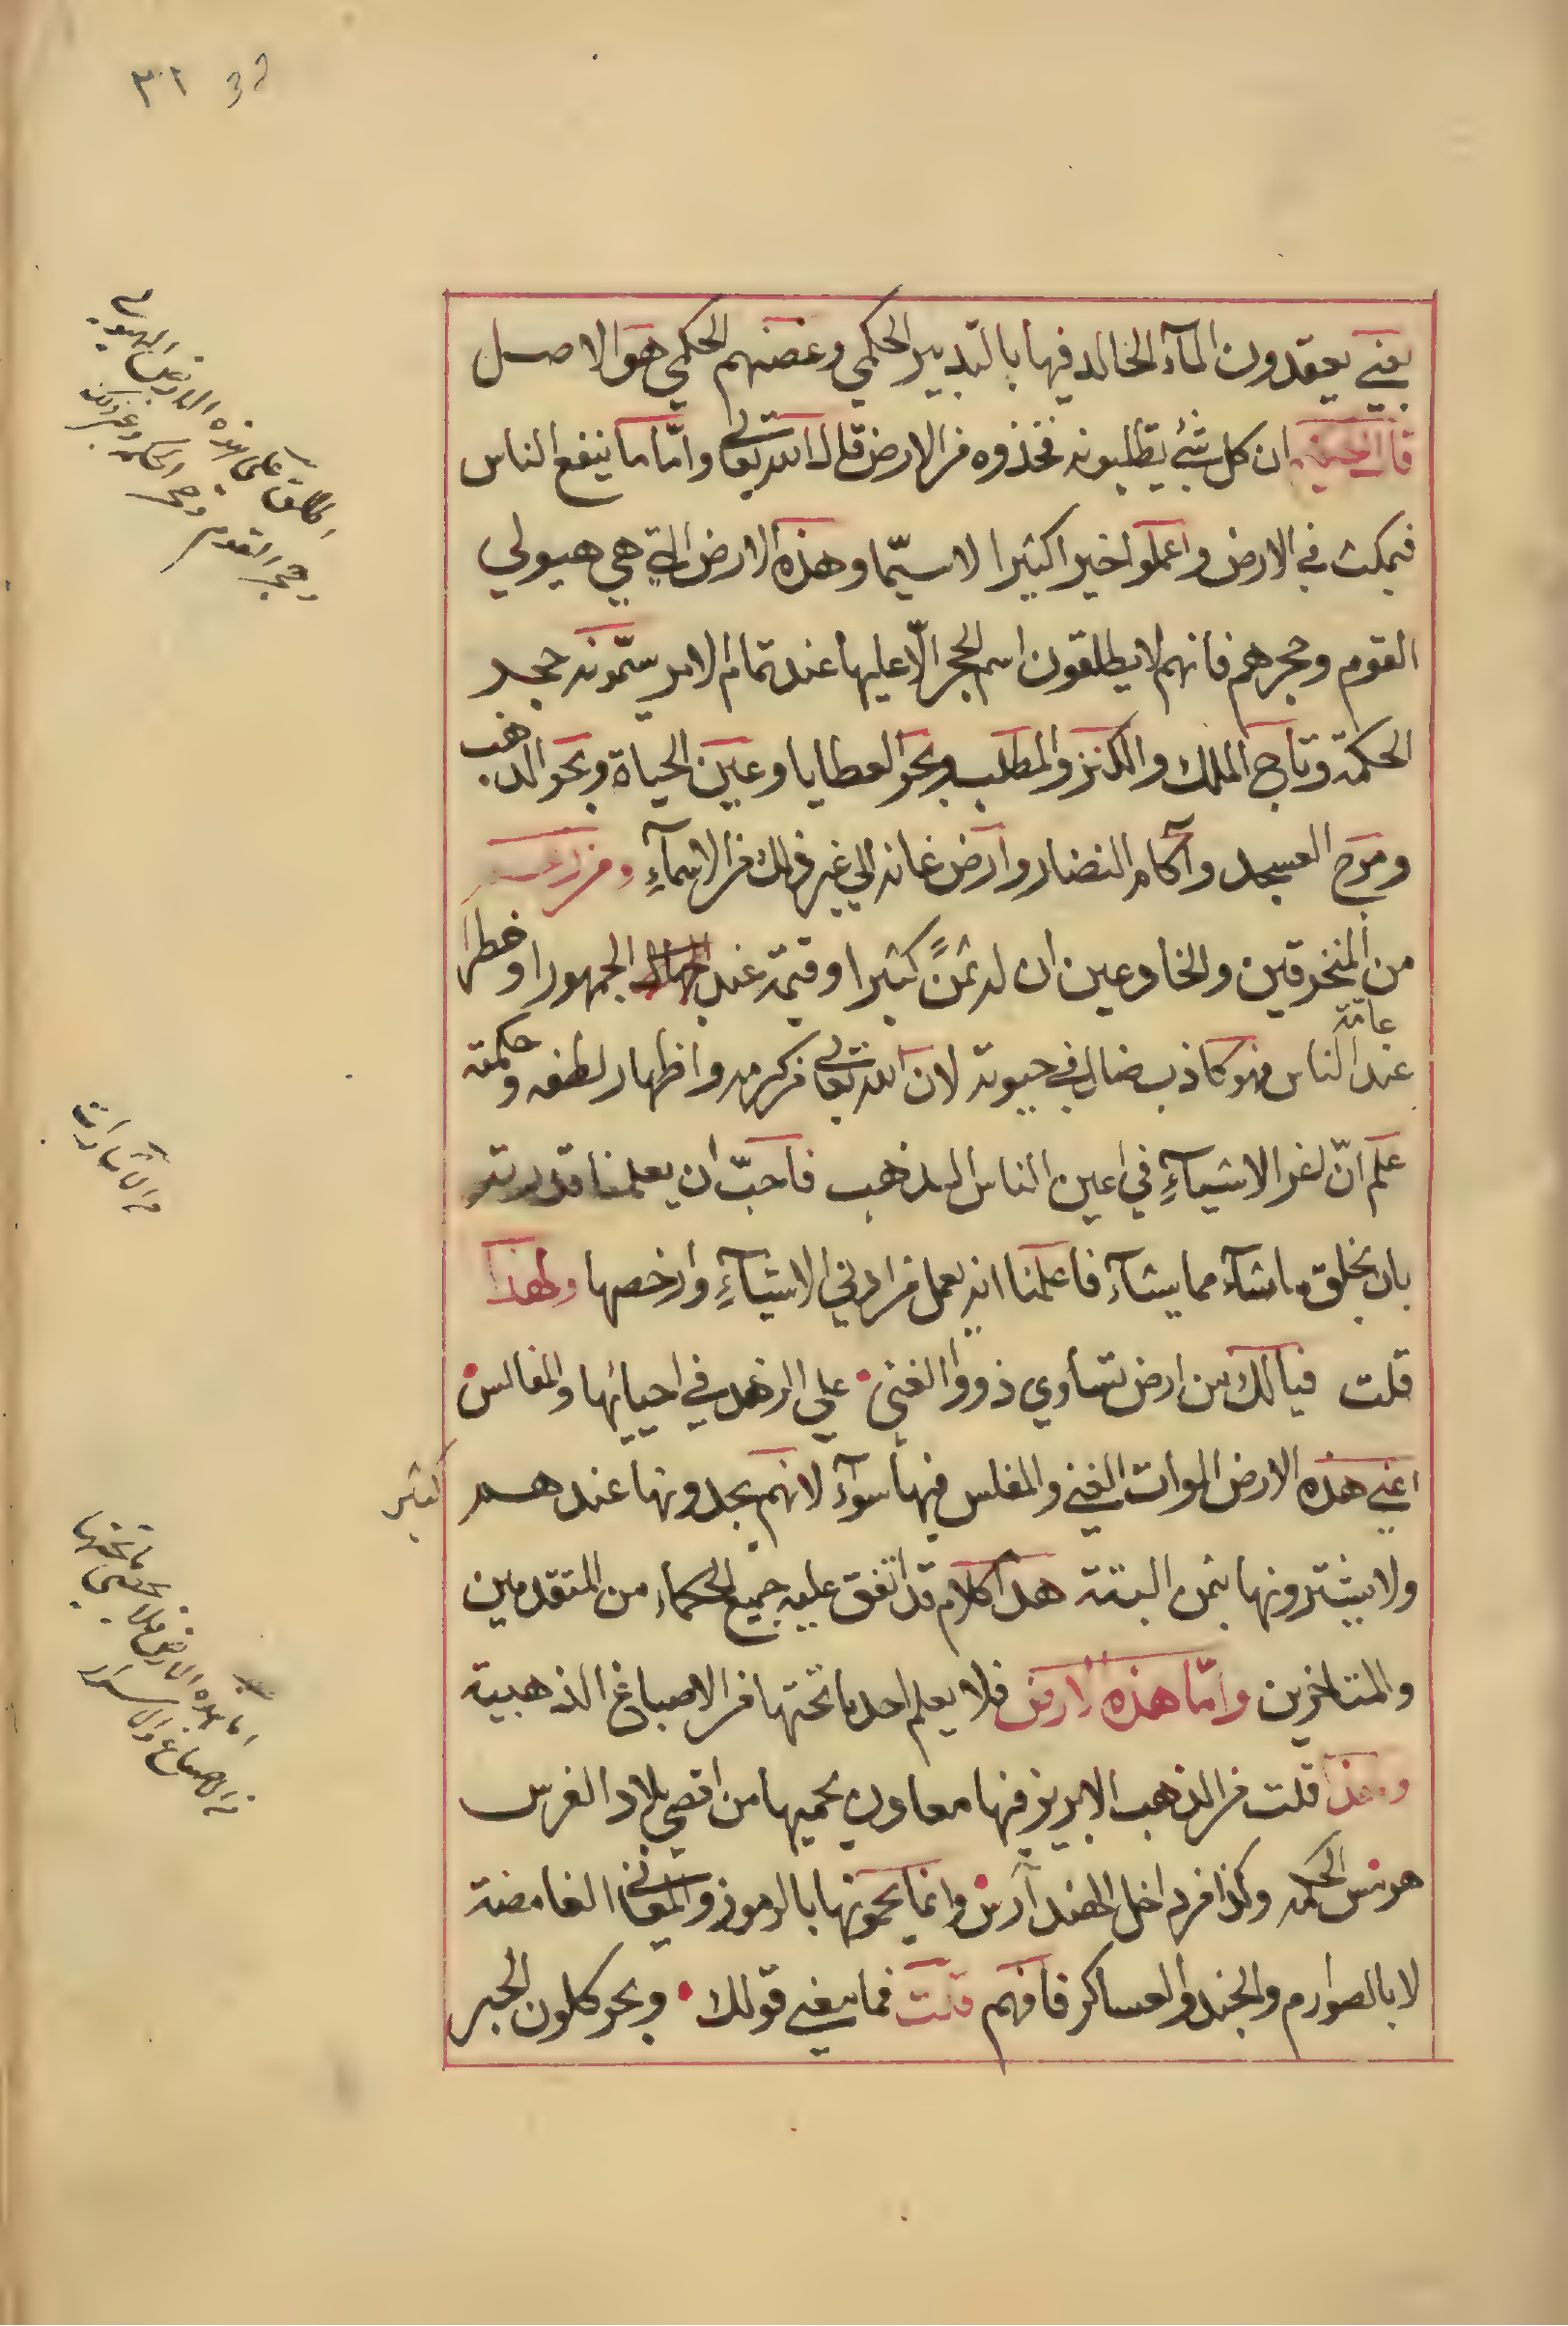 ٣٢ 32
يعني يعقدون المآء الخالد فيها بالتدبير الحكمي وغضنهم الحكمي هو الاصل
قال ان كل شئ يطلبونه فخذوه من الارض قال الله تعالى واما ما ينفع الناس
فيمكث في الارض واعلموا خيرا كثيرا لا سيّما وهذه الارض التي هي هيولي
القوم وحجرهم فانهم لا يطلقون اسم الحجر الّا عليها عند تمام الامر يسمّونه حجر
الحكمة وتاج الملك والكنز والمطلب وبحر العطايا وعين الحياة وبحر الذهب
ومرج العسجد وآكام النضار وارض غانه الي غير ذلك من الاسمآءِ ومن زعم
من المنخرقين والخادعين ان له ثمنًا كثيرا وقيمة عند الجمهور او خطرا
عند عامّة الناس فهو كاذب ضال في حيوته لان الله تعالى من كرمه واظهار لطفه وحكمته
علم انّ اعز الاشيآءِ في اعين الناس الذهب فاحبّ ان يعلمنا قدرته
بان يخلق ما شآء مما يشآء فاعلمنا انه يعمل من ادني الاشيآءِ وارخصها ولهذا
قلت فيا لك من ارض تساوي ذووا الغني • علي الرغد في احيائها والمفالس
اعني هذه الارض الموات الغني والمفلس فيها سوآء لانهم يجدونها عندهم كثير
ولا يشترونها بثمن البتة هذا كلام قد اتفق عليه جميع الحكماء من المتقدمين
والمتاخرين وامّا هذه الارض فلا يعلم احد ما تحتها من الاصباغ الذهبية
ولهذا قلت من الذهب الابريز فيها معادن يحميها من اقصي بلاد الفرس
هرمس الحكمة وكذا من داخل الهند آرس وانما يحمونها بالرموز والمعاني الغامضة
لا بالصوارم والجند والعساكر فافهم قلت فما يعني قولك • وبحر كلون الحبر
اطلق علي هذه الارض الهيولي
وحجر القوم وحجر الحكمة وغير ذلك
من الاشارات
اما هذه الارض فلا يحصي ما تحتها
من الاصباغ والاسرار